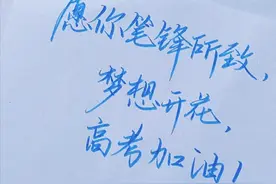 愿你笔锋所致，
梦想开花，
高考加油！